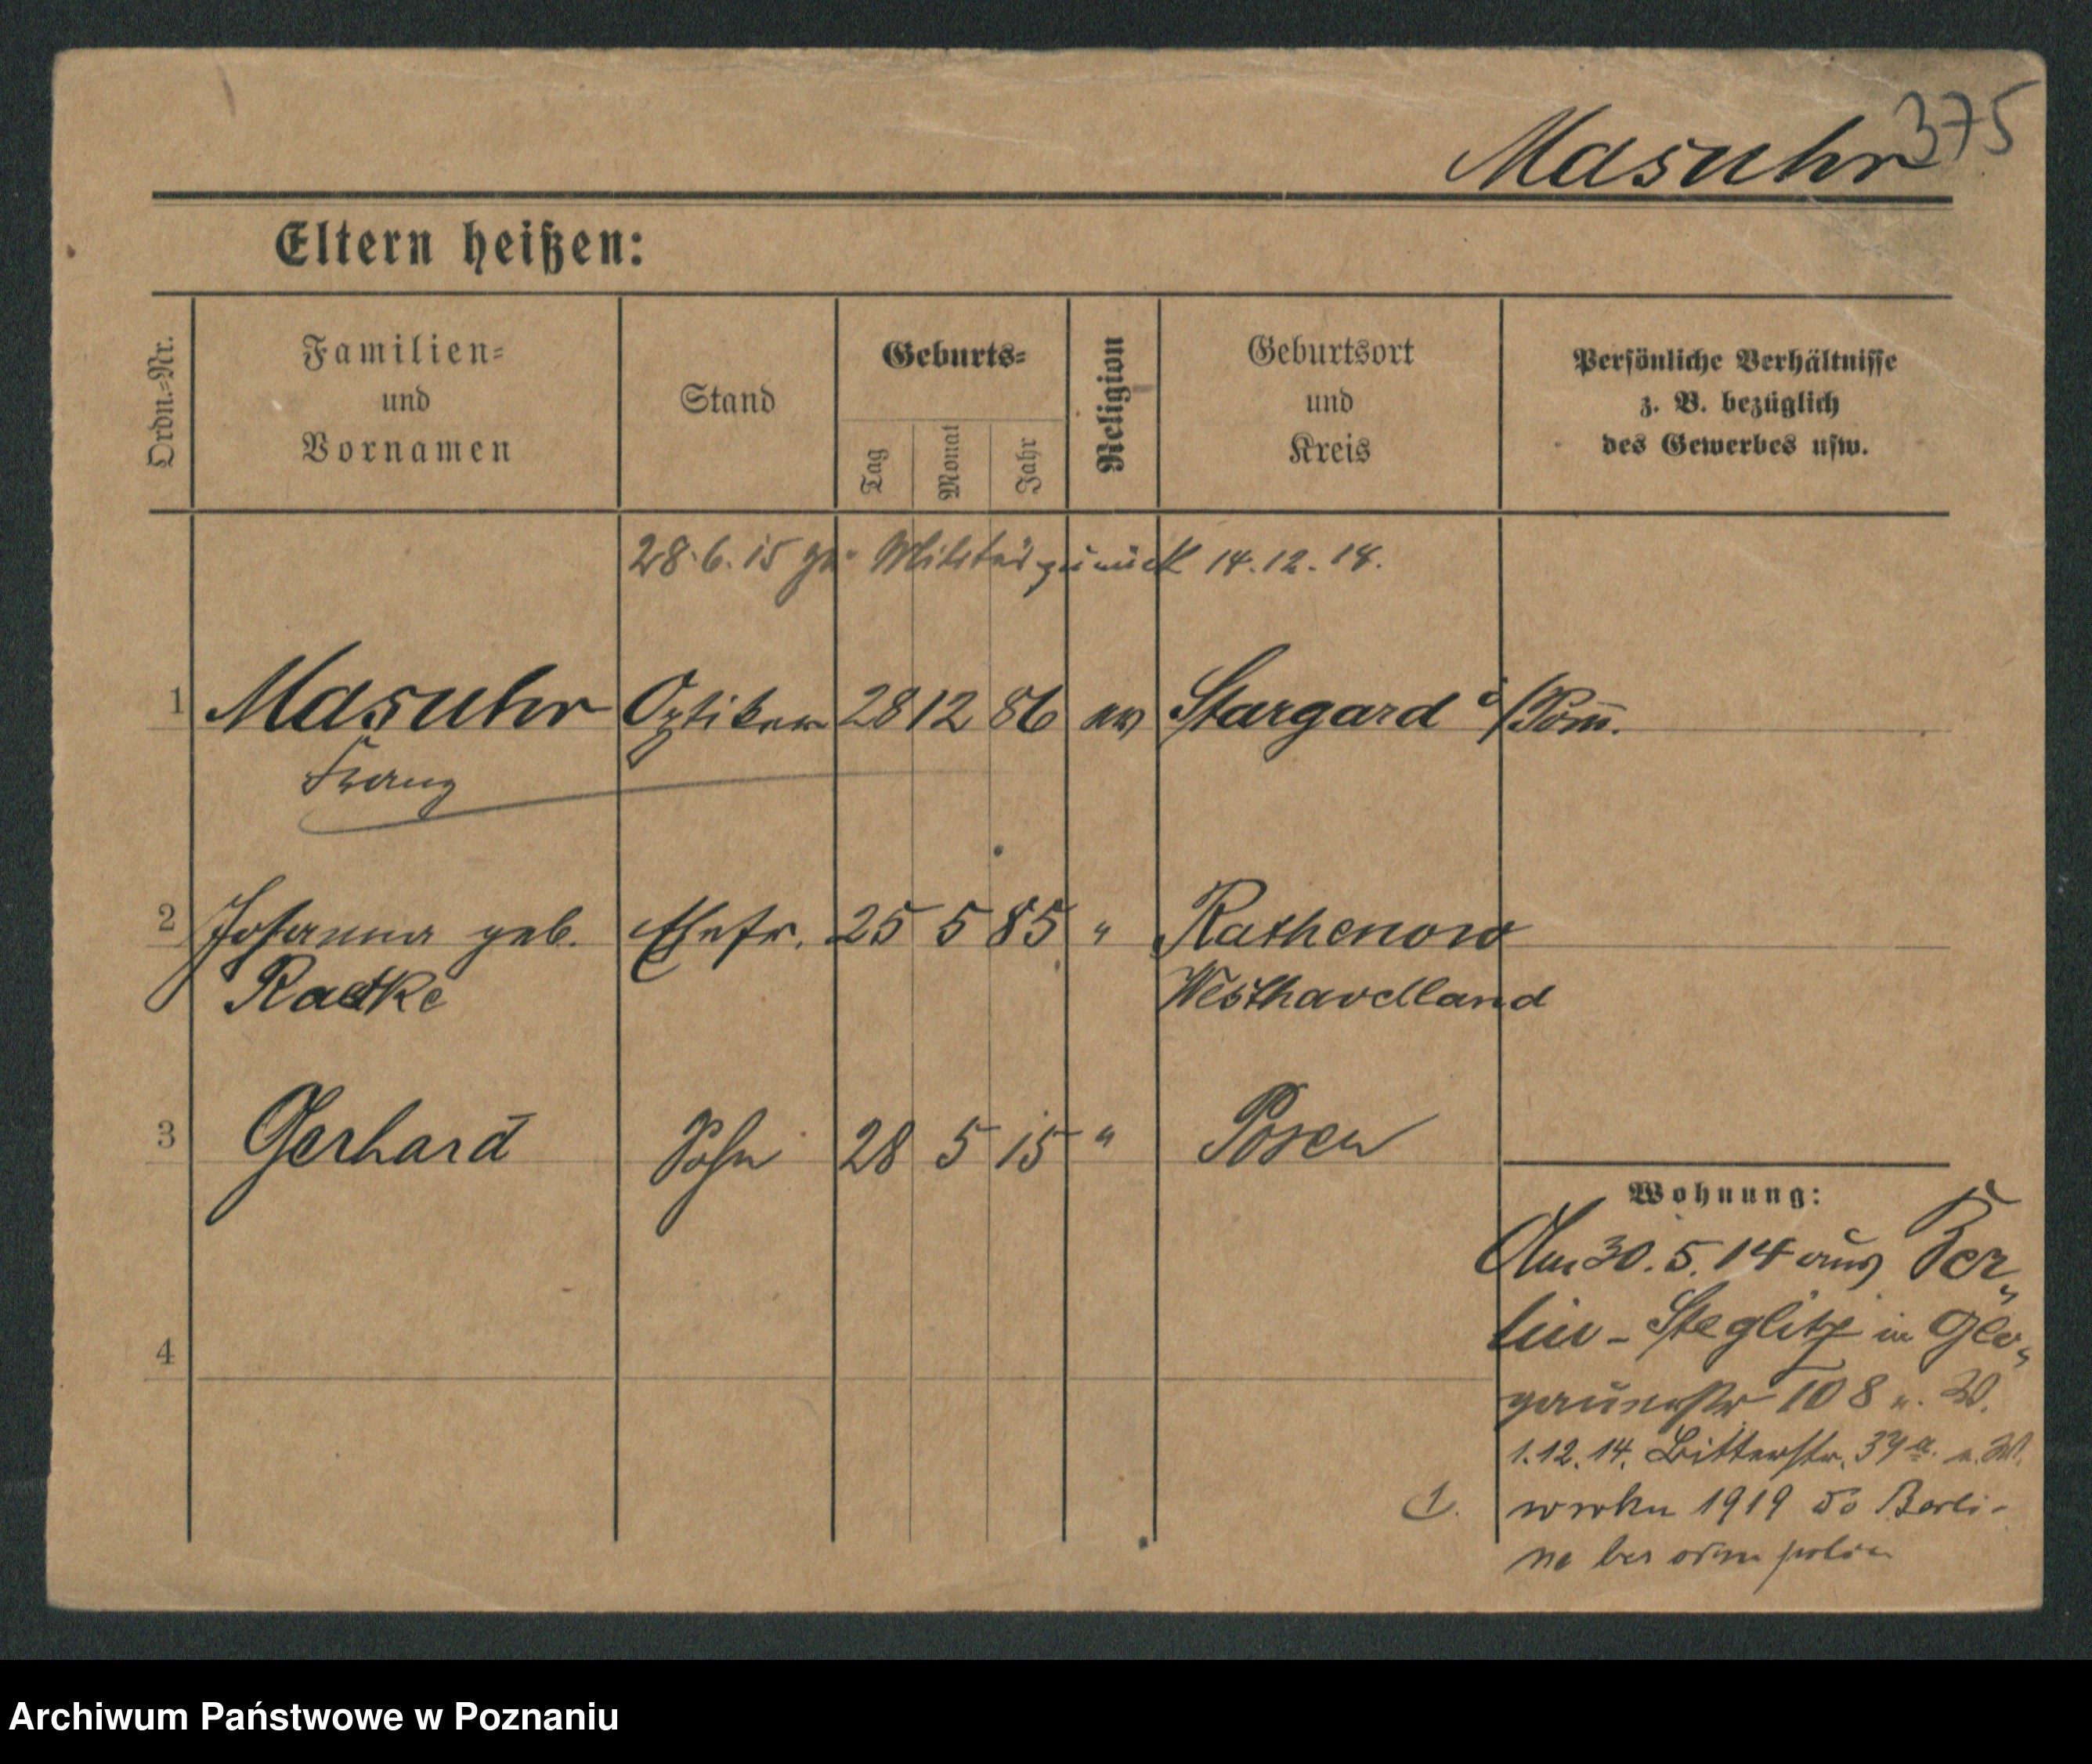 375
Masuhr
Eltern heißen:
Ordn.-Nr.
Familien-
und
Vornamen
Stand
Geburts-
Tag
Monat
Jahr
Religion
Geburtsort
und
Kreis
Persönliche Verhältnisse
z. B. bezüglich
des Gewerbes usw.
28.6.15 Militär zurück 14.12.18.
1 Masuhr Optiker 28 12 86 ev Stargard i/Pom.
Franz
2 Johanna geb. Ehefr. 25 5 85 " Rathenow
Radtke Westhavelland
3 Gerhard Sohn 28 5 15 " Posen
Wohnung:
Am 30.5.14 aus Ber-
lin-Steglitz in Glo-
gauerstr 108 u. W.
1.12.14. Bitterstr. a. W.
1.
w roku 1919 do Berli-
na bez
4
Archiwum Państwowe w Poznaniu